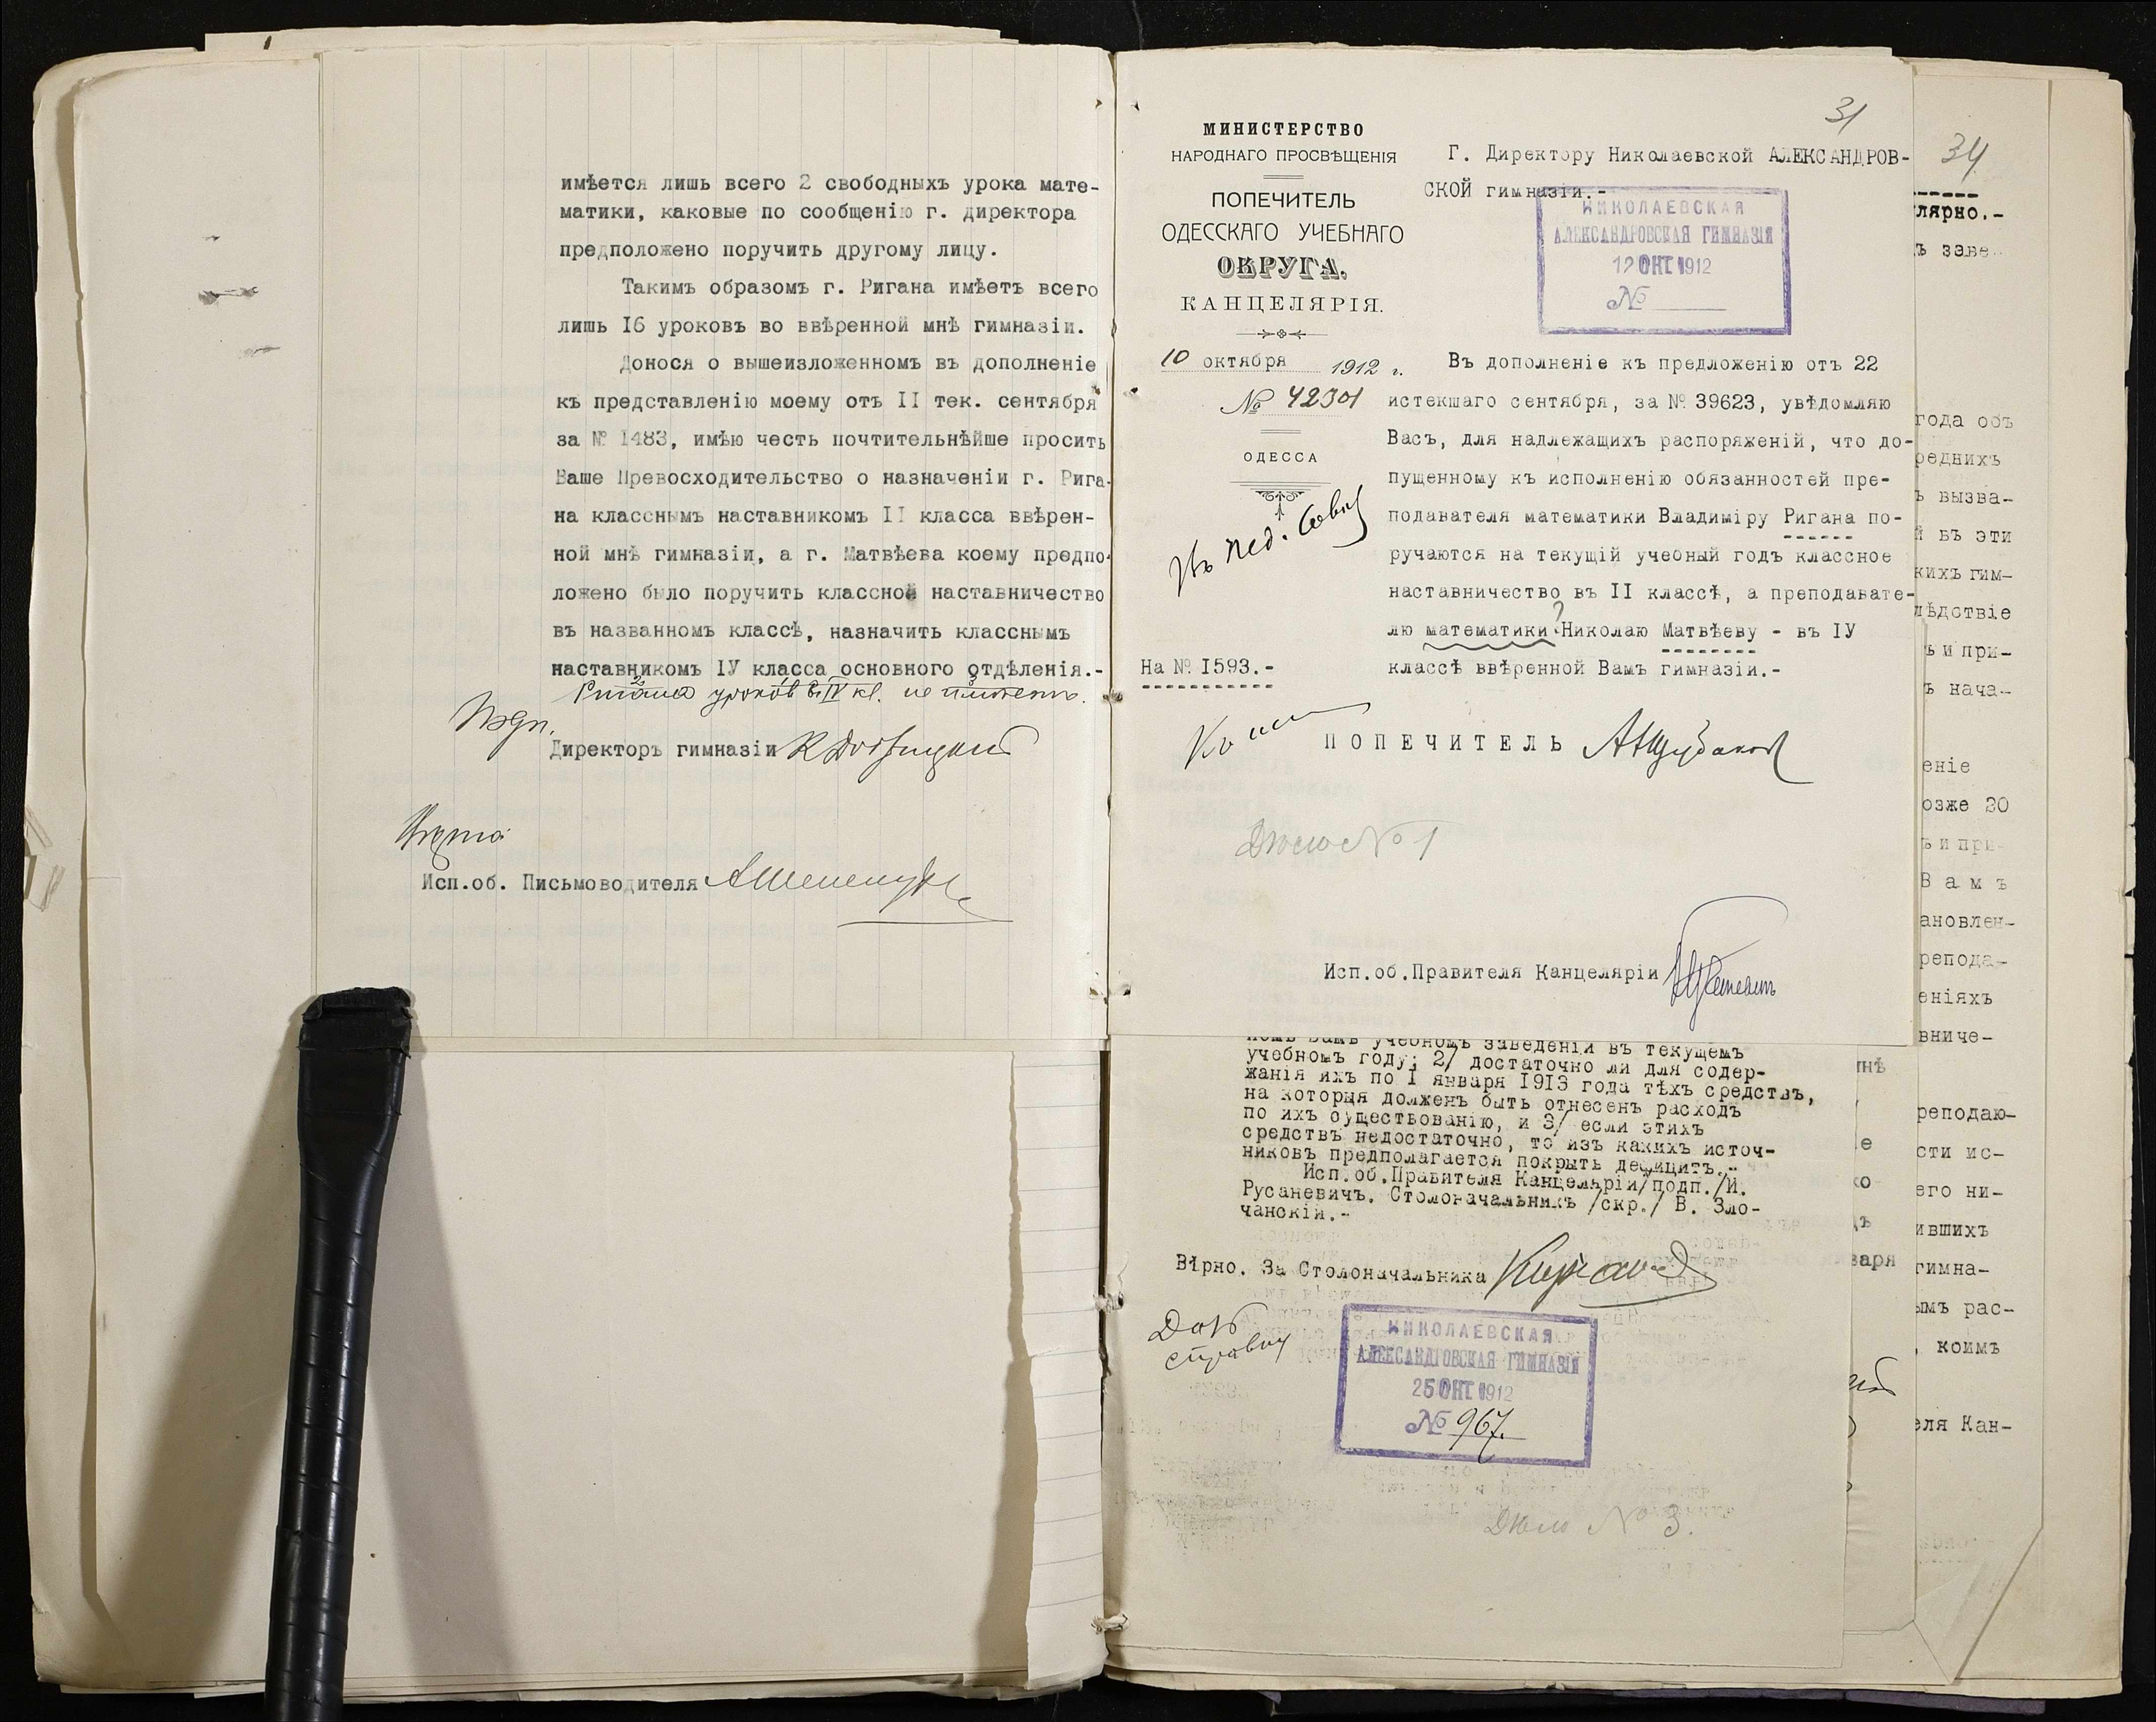 имѣется лишь всего 2 свободныхъ урока мате-
матики, каковые по сообщенію г. директора
предположено поручить другому лицу.
Такимъ образомъ г. Ригана имѣетъ всего
лишь I6 уроковъ во ввѣренной мнѣ гимназіи.
Донося о вышеизложенномъ въ дополненіе
къ представленію моему отъ II тек. сентября
за № I483, имѣю честь почтительнѣйше просить
Ваше Превосходительство о назначеніи г. Рига-
на класснымъ наставникомъ II класса ввѣрен-
ной мнѣ гимназіи, а г. Матвѣева коему предпо-
ложено было поручить классное наставничество
въ названномъ классѣ, назначить класснымъ
наставникомъ IУ класса основного отдѣленія.-
уроковъ въ IV кл. не
Директоръ гимназіи
Исп.об. Письмоводителя
31
МИНИСТЕРСТВО
НАРОДНАГО ПРОСВѢЩЕНІЯ
ПОПЕЧИТЕЛЬ
ОДЕССКАГО УЧЕБНАГО
ОКРУГА.
КАНЦЕЛЯРІЯ.
10 октября 1912 г.
№ 42301
ОДЕССА
Въ пед. Совѣт
На № I593.-
Г. Директору Николаевской АЛЕКСАНДРОВ-
СКОЙ гимназіи.-
НИКОЛАЕВСКАЯ
АЛЕКСАНДРОВСКАЯ ГИМНАЗІЯ
12 ОКТ 1912
№
Въ дополненіе къ предложенію отъ 22
истекшаго сентября, за № 39623, увѣдомляю
Васъ, для надлежащихъ распоряженій, что до-
пущенному къ исполненію обязанностей пре-
подавателя математики Владиміру Ригана по-
ручаются на текущій учебный годъ классное
наставничество въ II классѣ, а преподавате-
лю математики ? Николаю Матвѣеву - въ IУ
классѣ ввѣренной Вамъ гимназіи.-
ПОПЕЧИТЕЛЬ
Дѣло № 1
Исп.об.Правителя Канцеляріи
номъ Вамъ учебномъ заведеніи въ текущемъ
учебномъ году; 2/ достаточно ли для содер-
жанія ихъ по I января I9I3 года тѣхъ средствъ,
на которыя долженъ быть отнесенъ расходъ
по ихъ существованію, и 3/ если этихъ
средствъ недостаточно, то изъ какихъ источ-
никовъ предполагается покрыть дефицитъ.-
Исп.об.Правителя Канцеляріи/подп./И.
Русаневичъ. Столоначальникъ /скр./ В. Зло-
чанскій.-
Вѣрно. За Столоначальника
Дать
справку
НИКОЛАЕВСКАЯ
АЛЕКСАНДРОВСКАЯ ГИМНАЗІЯ
25 ОКТ 1912
№ 967.
Дѣло № 3.
34
лярно.-
ъ заве-
года объ
реднихъ
ъ вызва-
й въ эти
кихъ гим-
лѣдствіе
ъ и при-
ъ нача-
еніе
озже 20
ъ и при-
В а м ъ
ановлен-
репода-
еніяхъ
вниче-
реподаю-
сти ис-
его ни-
ившихъ
гимна-
ымъ рас-
, коимъ
еля Кан-